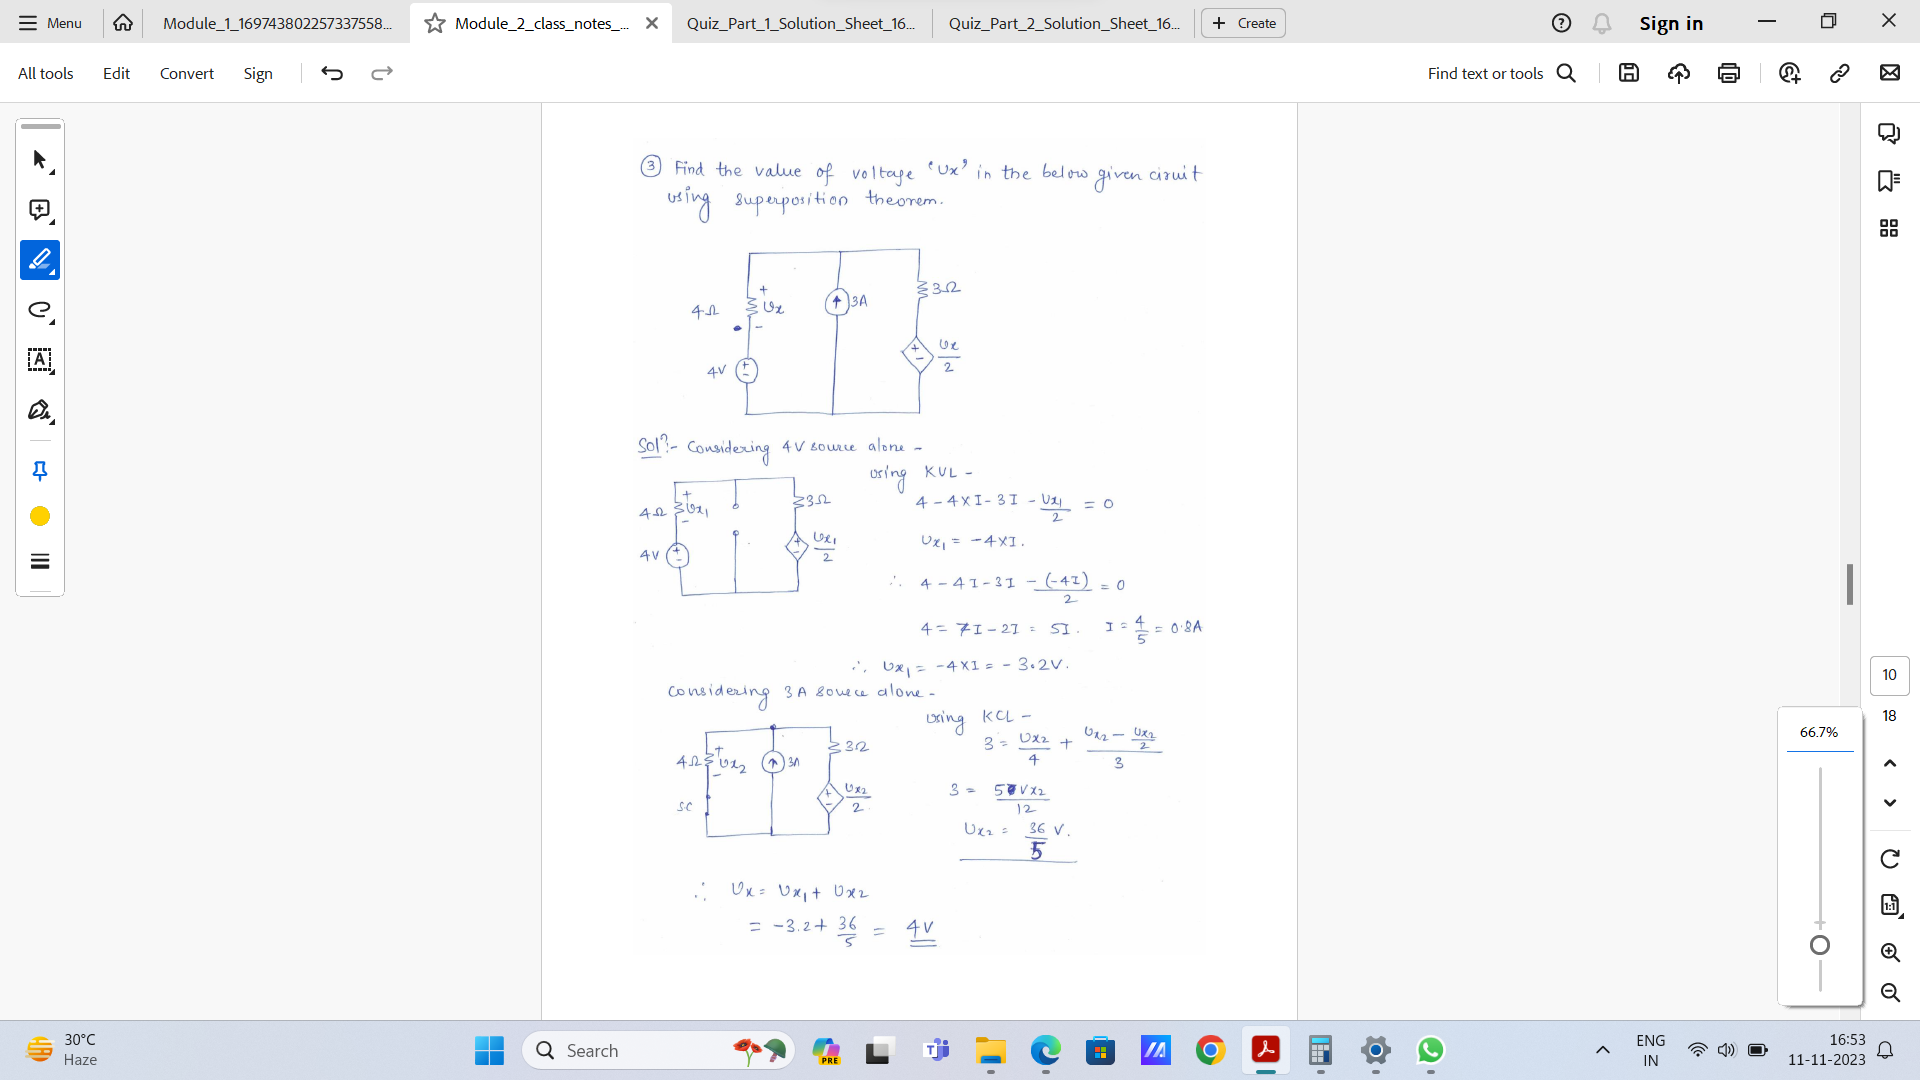 Menu
Module_1_169743802257337558...
Module_2_class_notes_...
Quiz_Part_1_Solution_Sheet_16...
Quiz_Part_2_Solution_Sheet_16...
+ Create
Sign in
All tools
Edit
Convert
Sign
Find text or tools
③ Find the value of voltage 'Ux' in the below given ciruit
using superposition theorem.
4Ω
+
Ux
-
3A
3Ω
4V
+
-
+
-
Ux/2
Solⁿ:- Considering 4V source alone -
using KVL -
4Ω
+
Ux1
-
3Ω
4V
+
-
+
-
Ux1/2
4 - 4×I - 3I - Ux1/2 = 0
Ux1 = -4×I.
∴ 4 - 4I - 3I - (-4I)/2 = 0
4 = 7I - 2I = 5I. I = 4/5 = 0.8A
∴ Ux1 = -4×I = - 3.2V.
Considering 3A source alone -
using KCL -
4Ω
+
Ux2
-
3A
3Ω
SC
+
-
Ux2/2
3 = Ux2/4 + (Ux2 - Ux2/2)/3
3 = 5Vx2/12
Ux2 = 36/5 V.
∴ Ux = Ux1 + Ux2
= -3.2 + 36/5 = 4V
10
18
66.7%
1:1
30°C
Haze
Search
PRE
ENG
IN
16:53
11-11-2023